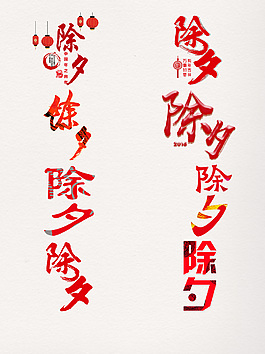 除夕
除夕
除夕
除夕
2016
除夕
除夕
除夕
除夕